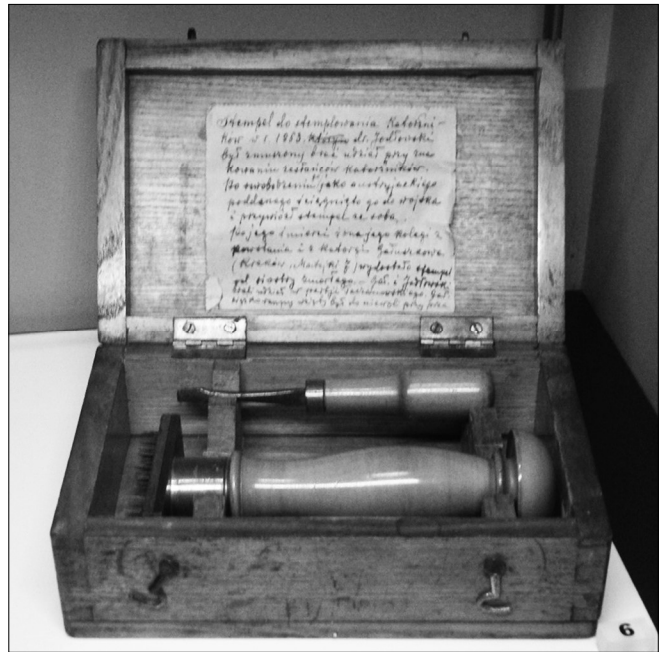 Stempel do stemplowania Katorżni-
ków w r. 1863. którym dr. Jodłowski
był zmuszony brać udział przy zna
kowaniu zesłańców katorżników.
Po uwolnieniu jako austryjackiego
poddanego ściągnięto go do wojska
i przywiózł stempel ze sobą.
Po jego śmierci żona jego kolegi z
powstania i z katorgi Gałuszkowa
(Kraków, 7) wydostała stempel
od siostry zmarłego. Gał. i Jodłowski
brali udział w partji Gał.
był do niewoli przy
6